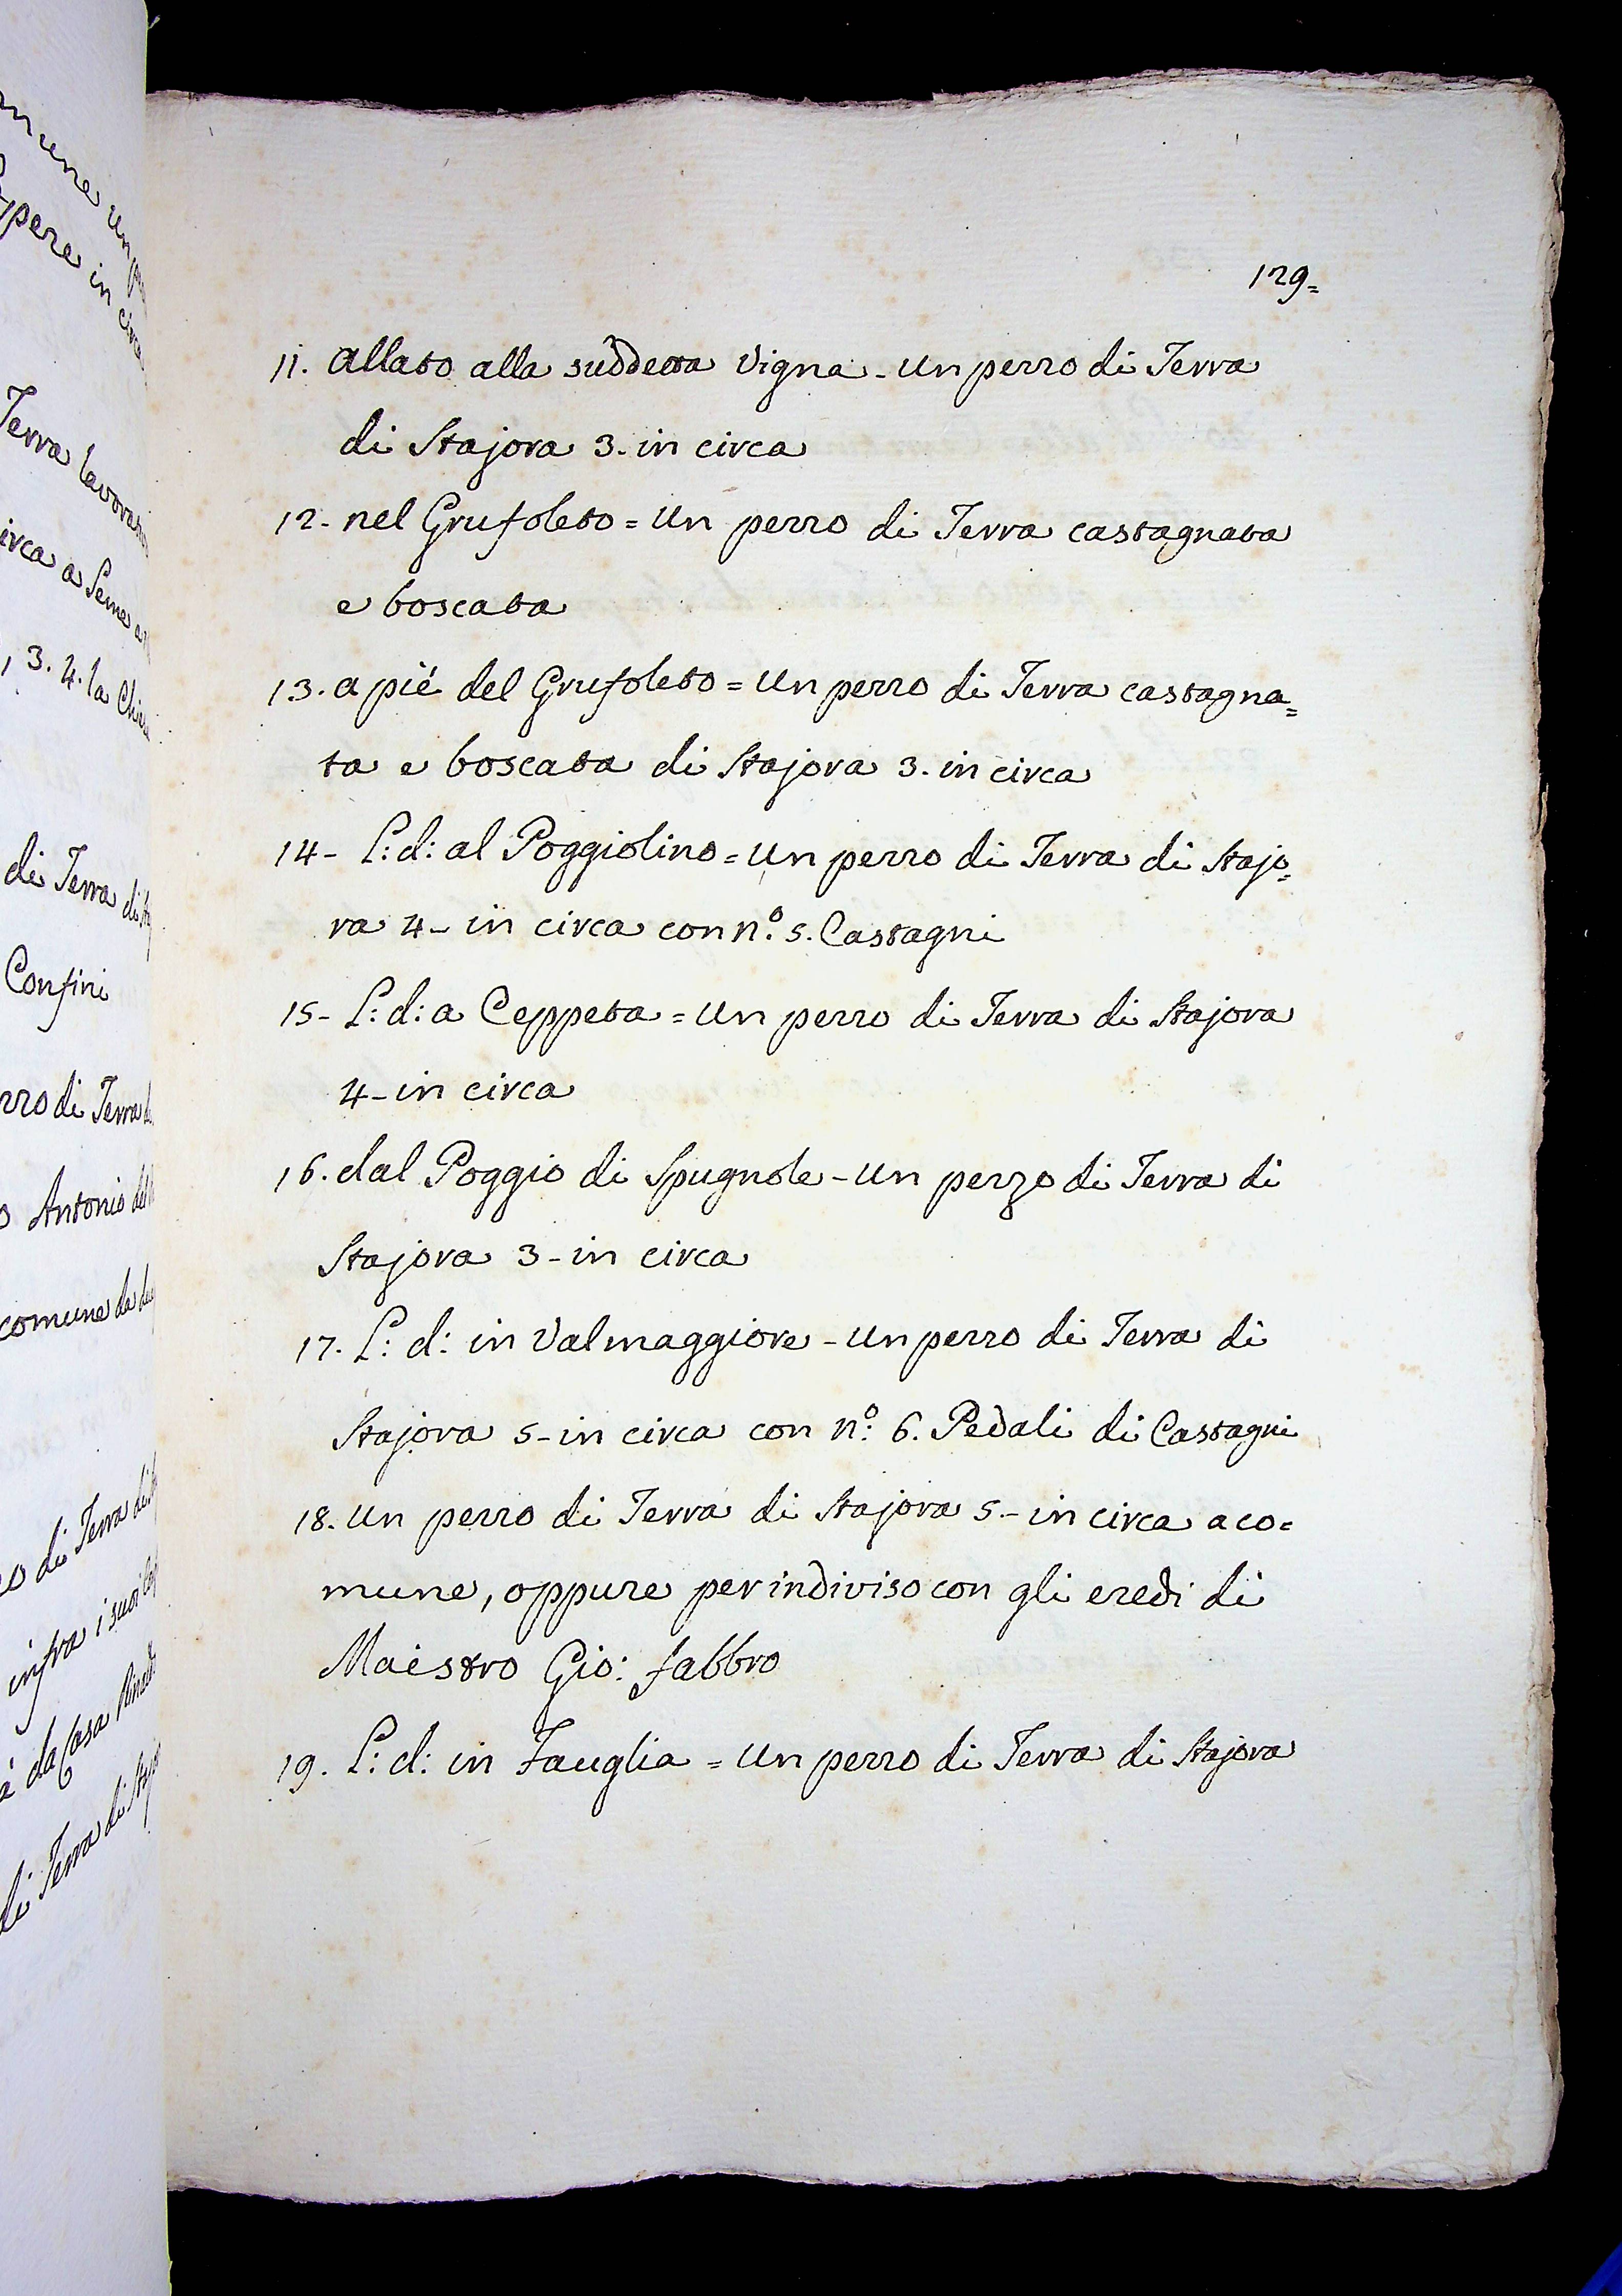 129=
11. allato alla suddetta Vigna - Un pezzo di Terra
di Stajora 3. in circa
12- nel Grufoleto = Un pezzo di Terra castagnata
e boscata
13. a pié del Grufoleto = Un pezzo di Terra castagna=
ta e boscata di Stajora 3. in circa
14- L: d: al Poggiolino = Un pezzo di Terra di Stajo=
ra 4- in circa con n.º 5. Castagni
15- L: d: a Ceppeta = Un pezzo di Terra di Stajora
4- in circa
16. dal Poggio di Spugnole - Un pezzo di Terra di
Stajora 3- in circa
17. L: d: in Valmaggiore - Un pezzo di Terra di
Stajora 5- in circa con n.º 6. Pedali di Castagni
18. Un pezzo di Terra di Stajora 5.- in circa a co=
mune, oppure per indiviso con gli eredi di
Maestro Gio: fabbro
19. L: d: in Fauglia = Un pezzo di Terra di Stajora